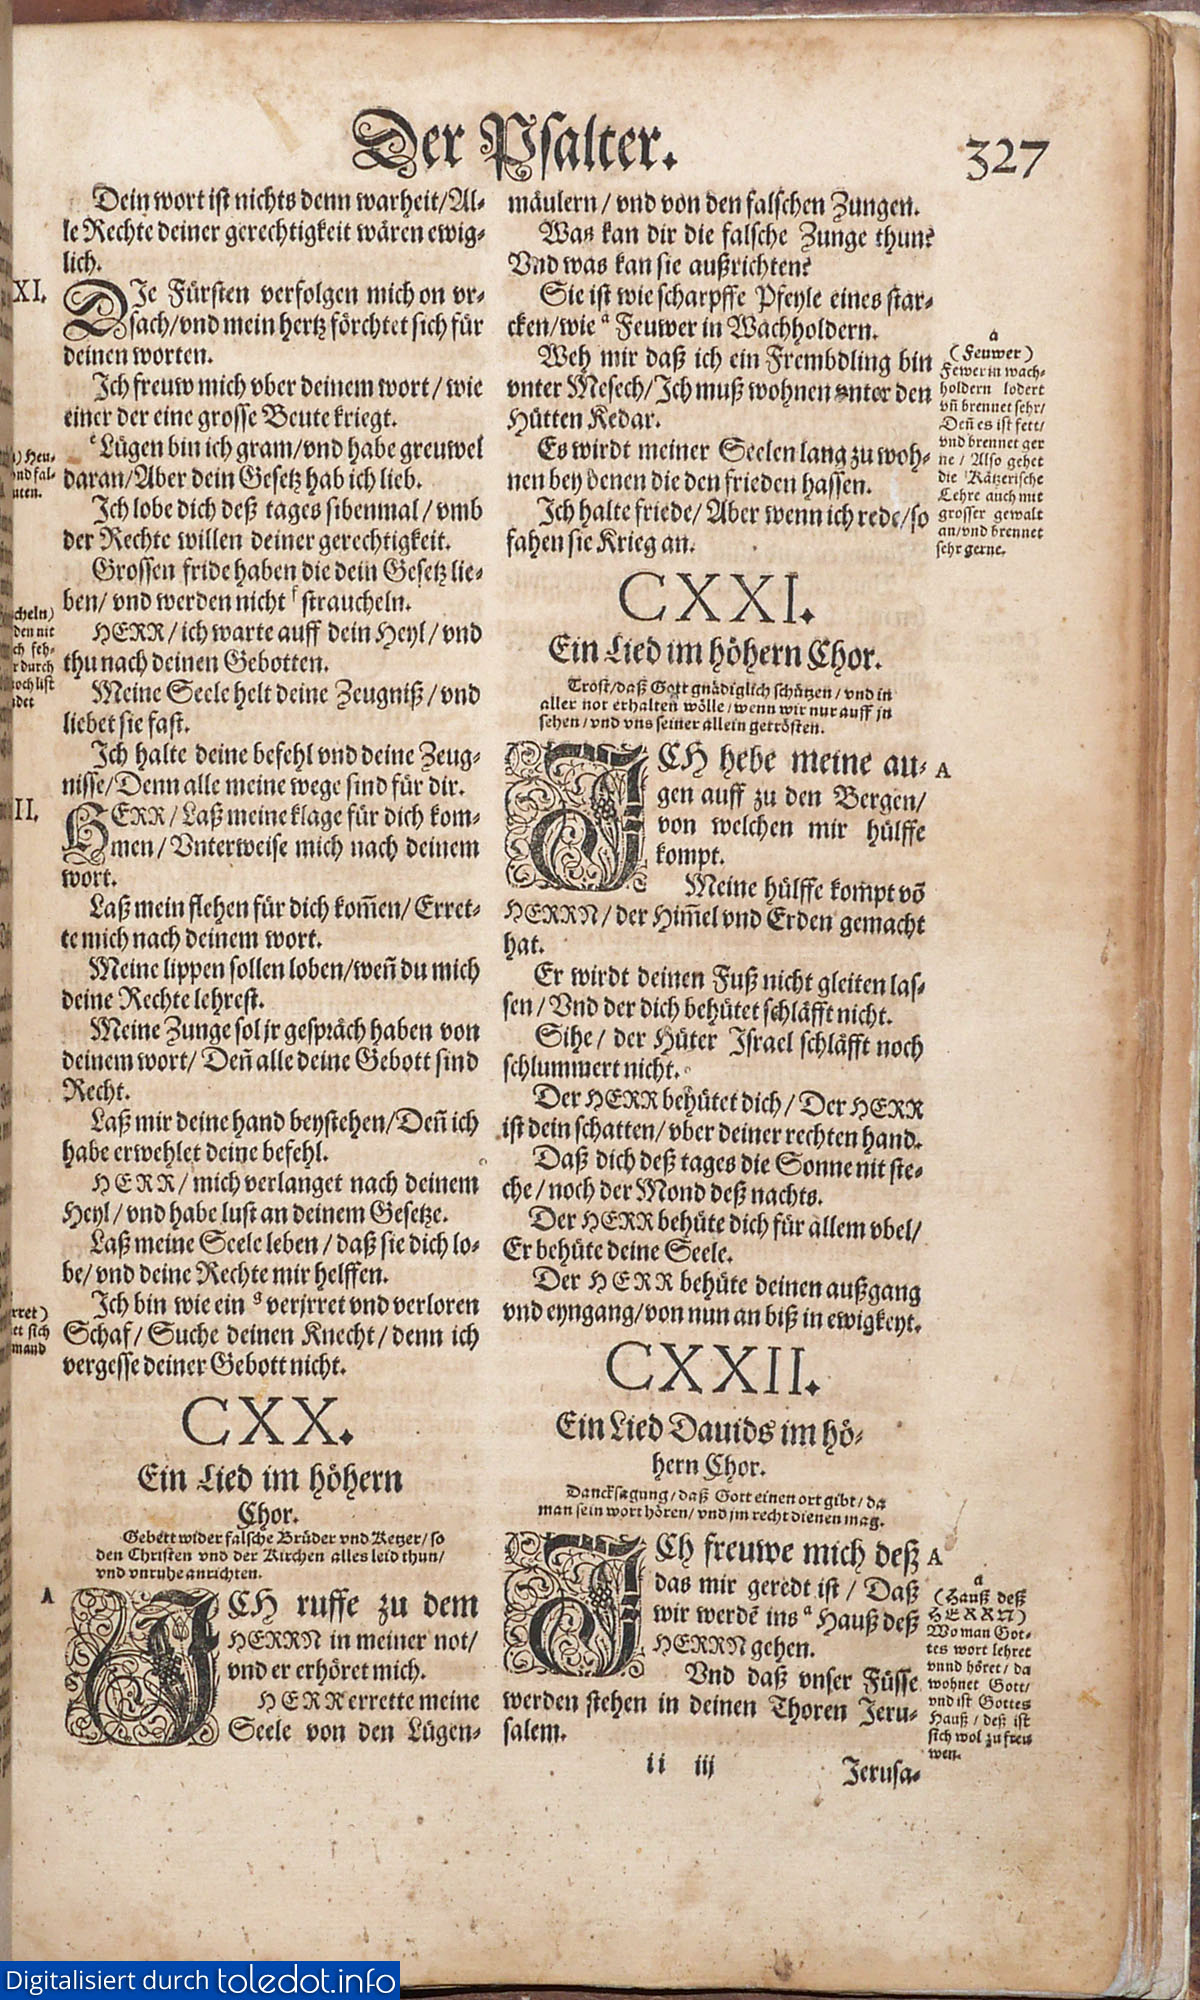 Der Psalter. 327
Dein wort ist nichts denn warheit/Al-
le Rechte deiner gerechtigkeit wären ewig-
lich.
XI.
DIe Fürsten verfolgen mich on vr-
sach/vnd mein hertz förchtet sich für
deinen worten.
Ich freuw mich vber deinem wort/ wie
einer der eine grosse Beute kriegt.
e Lügen bin ich gram/vnd habe greuwel
daran/Aber dein Gesetz hab ich lieb.
Ich lobe dich deß tages sibenmal/ vmb
der Rechte willen deiner gerechtigkeit.
Grossen fride haben die dein Gesetz lie-
ben/ vnd werden nicht f straucheln.
HERR/ ich warte auff dein Heyl/ vnd
thu nach deinen Gebotten.
Meine Seele helt deine Zeugniß/ vnd
liebet sie fast.
Ich halte deine befehl vnd deine Zeug-
nisse/Denn alle meine wege sind für dir.
II.
HERR/ Laß meine klage für dich kom-
men/ Vnterweise mich nach deinem
wort.
Laß mein flehen für dich kom̄en/ Erret-
te mich nach deinem wort.
Meine lippen sollen loben/wen̄ du mich
deine Rechte lehrest.
Meine Zunge sol jr gespräch haben von
deinem wort/ Den̄ alle deine Gebott sind
Recht.
Laß mir deine hand beystehen/Den̄ ich
habe erwehlet deine befehl.
HERR/ mich verlanget nach deinem
Heyl/ vnd habe lust an deinem Gesetze.
Laß meine Seele leben/ daß sie dich lo-
be/ vnd deine Rechte mir helffen.
Ich bin wie ein g verjrret vnd verloren
Schaf/ Suche deinen Knecht/ denn ich
vergesse deiner Gebott nicht.
) Heu-
nd fal-
cheln)
den nit
ch feh-
r durch
och list
rret)
et sich
mand
CXX.
Ein Lied im höhern
Chor.
Gebett wider falsche Brüder vnd Ketzer/ so
den Christen vnd der Kirchen alles leid thun/
vnd vnruhe anrichten.
A
ICH ruffe zu dem
HERRN in meiner not/
vnd er erhöret mich.
HERR errette meine
Seele von den Lügen-
mäulern/ vnd von den falschen Zungen.
Was kan dir die falsche Zunge thun?
Vnd was kan sie außrichten?
Sie ist wie scharpffe Pfeyle eines star-
cken/wie a Feuwer in Wachholdern.
Weh mir daß ich ein Frembdling bin
vnter Mesech/Ich muß wohnen vnter den
Hütten Kedar.
Es wirdt meiner Seelen lang zu woh-
nen bey denen die den frieden hassen.
Ich halte friede/ Aber wenn ich rede/so
fahen sie Krieg an.
a
(Feuwer)
Fewer in wach-
holdern lodert
vn̄ brennet sehr/
Den̄ es ist fett/
vnd brennet ger
ne/ Also gehet
die Kätzerische
Lehre auch mit
grosser gewalt
an/vnd brennet
sehr gerne.
CXXI.
Ein Lied im höhern Chor.
Trost/daß Gott gnädiglich schützen/ vnd in
aller not erhalten wölle/wenn wir nur auff jn
sehen/ vnd vns seiner allein getrösten.
ICH hebe meine au- A
gen auff zu den Bergen/
von welchen mir hülffe
kompt.
Meine hülffe kompt võ
HERRN/ der Him̄el vnd Erden gemacht
hat.
Er wirdt deinen Fuß nicht gleiten las-
sen/ Vnd der dich behütet schläfft nicht.
Sihe/ der Hüter Israel schläfft noch
schlummert nicht.
Der HERR behütet dich/ Der HERR
ist dein schatten/ vber deiner rechten hand.
Daß dich deß tages die Sonne nit ste-
che/ noch der Mond deß nachts.
Der HERR behüte dich für allem vbel/
Er behüte deine Seele.
Der HERR behüte deinen außgang
vnd eyngang/von nun an biß in ewigkeyt.
CXXII.
Ein Lied Dauids im hö-
hern Chor.
Dancksagung/ daß Gott einen ort gibt/ da
man sein wort hören/ vnd jm recht dienen mag.
ICh freuwe mich deß A
das mir geredt ist/ Daß
wir werdē ins a Hauß deß
HERRN gehen.
Vnd daß vnser Füsse
werden stehen in deinen Thoren Jeru-
salem.
a
(Hauß deß
HERRN)
Wo man Got-
tes wort lehret
vnnd höret/ da
wohnet Gott/
vnd ist Gottes
Hauß/ deß ist
sich wol zu freu
wen.
ii iij
Jerusa-
Digitalisiert durch toledot.info